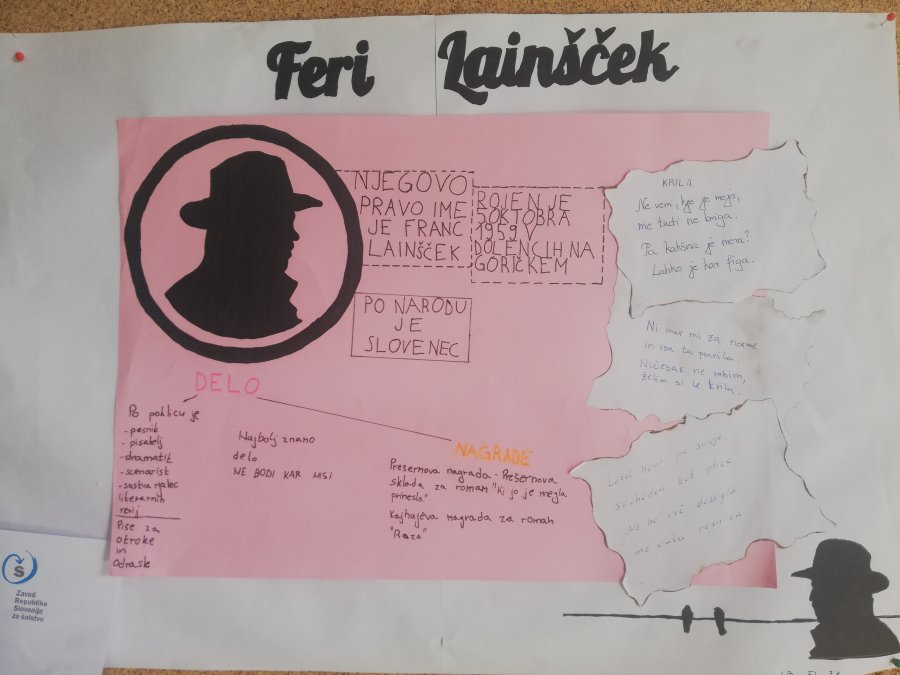 Feri Lainšček
NJEGOVO
PRAVO IME
JE FRANC
LAINŠČEK
ROJEN JE
5OKTOBRA
1959 V
DOLENCIH NA
GORIČKEM
PO NARODU
JE
SLOVENEC
KRILA
Ne vem, kje je meja,
me tudi ne briga.
Pa kakšna je mera?
Lahko je kar figa.
Ni mar mi za norme
in vsa ta pravila.
Ničesar ne rabim,
želim si le krila.
Letel bom po svoje,
svoboden kot ptica
Ne bo več dosegla
me vaša resnica
DELO
Po poklicu je
- pesnik
- pisatelj
- dramatik
- scenarist
literarnih
revij
Piše za
otroke
in
odrasle
Najbolj znano
delo
NE BODI KAR NISI
NAGRADE
Prešernova nagrada - Prešernova
sklada za roman "Ki jo je megla
prinesla"
Kajhujeva nagrada za roman
"Raza"
Š
Zavod
Republike
Slovenije
za šolstvo